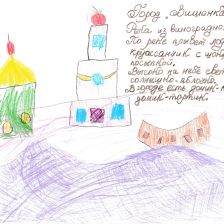 Город „Вишенка"
Река из виноградно
По реке плывёт
круассанчик с шоко
посыпкой.
Высоко на небе свет
солнышко-яблоко.
В городе есть домик-к
домик-тортик.